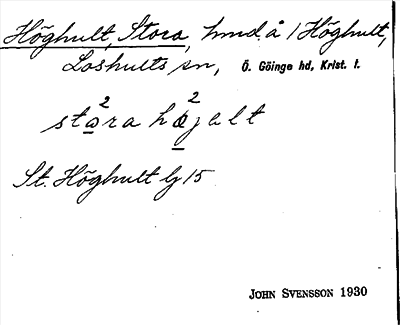 Höghult, Stora, hmd. å /Höghult,
Loshults sn, Ö. Göinge hd, Krist. l.
stara højelt
St. Höghult lj 15
JOHN SVENSSON 1930